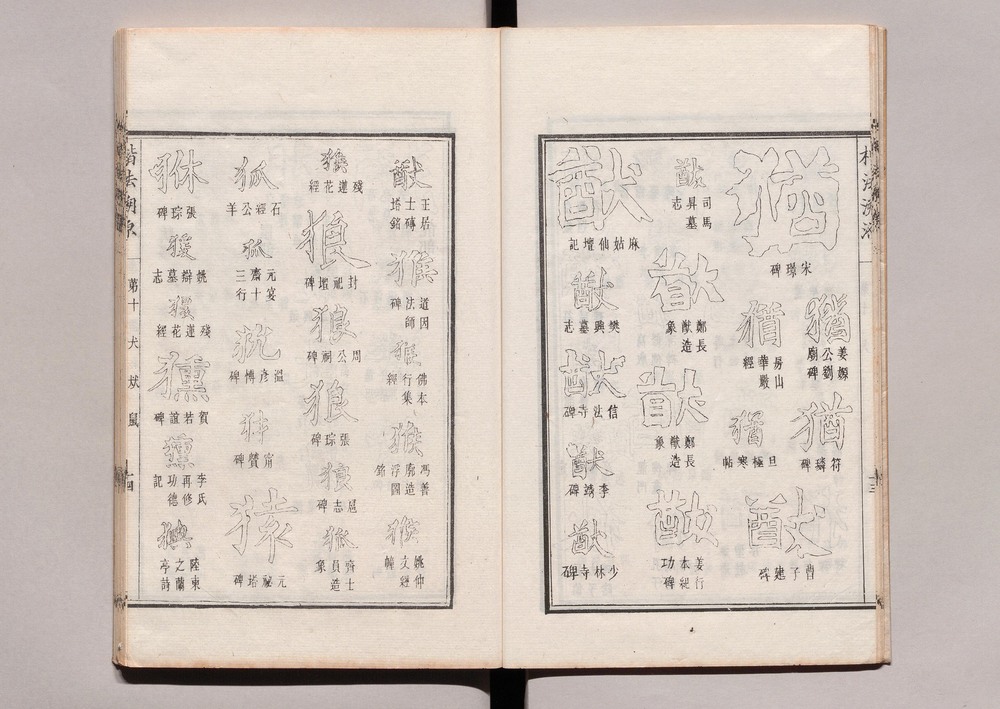 猶
宋璟碑
猶
姜嫄公劉廟碑
猶
符璘碑
猷
曹子建碑
猷
司馬昇墓志
猷
鄭長猷造象
猷
鄭長猷造象
猷
姜行本紀功碑
猷
麻姑仙壇記
猷
樊興墓志
猷
信法寺碑
猷
李靖碑
猷
少林寺碑
猶
房山華嚴經
猶
旦極寒帖
楷法溯源
第十
犬
㹜
鼠
猷
王居士磚塔銘
猴
道因法師碑
猴
佛本行集經
猴
馮善廓造浮圖銘
猴
姚仲文經幢
猴
殘蓮花經
狼
封祀壇碑
狼
周公祠碑
狼
張琮碑
狼
狐
騎士員造象
狐
石經公羊
狐
元宴齋三十行
溫彥博碑
甯贊碑
猿
元祕塔碑
張琮碑
猨
姚辯墓志
殘蓮花經
獯
賀若誼碑
李氏再修功德記
陸東之蘭亭詩